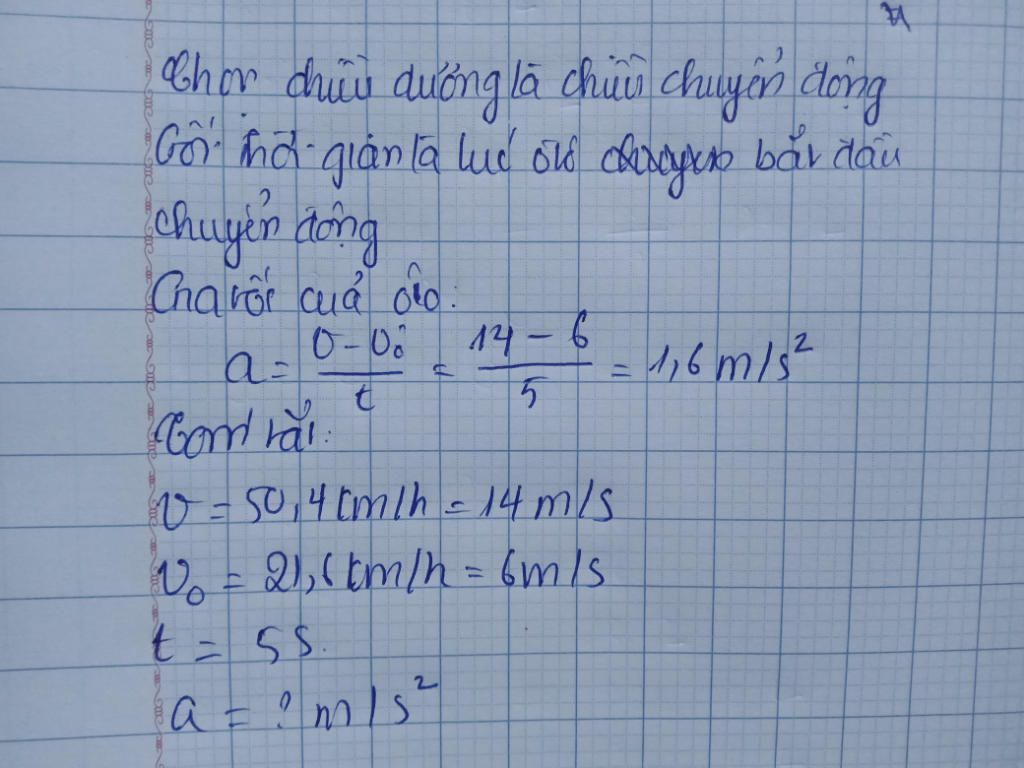 Chọn chiều dương là chiều chuyển động
Gốc thời gian là lúc ôtô bắt đầu
chuyển động
Gia tốc của ôtô:
a = (v - v₀)/t = (14 - 6)/5 = 1,6 m/s²
Tóm tắt:
v = 50,4 km/h = 14 m/s
v₀ = 21,6 km/h = 6 m/s
t = 5 s.
a = ? m/s²